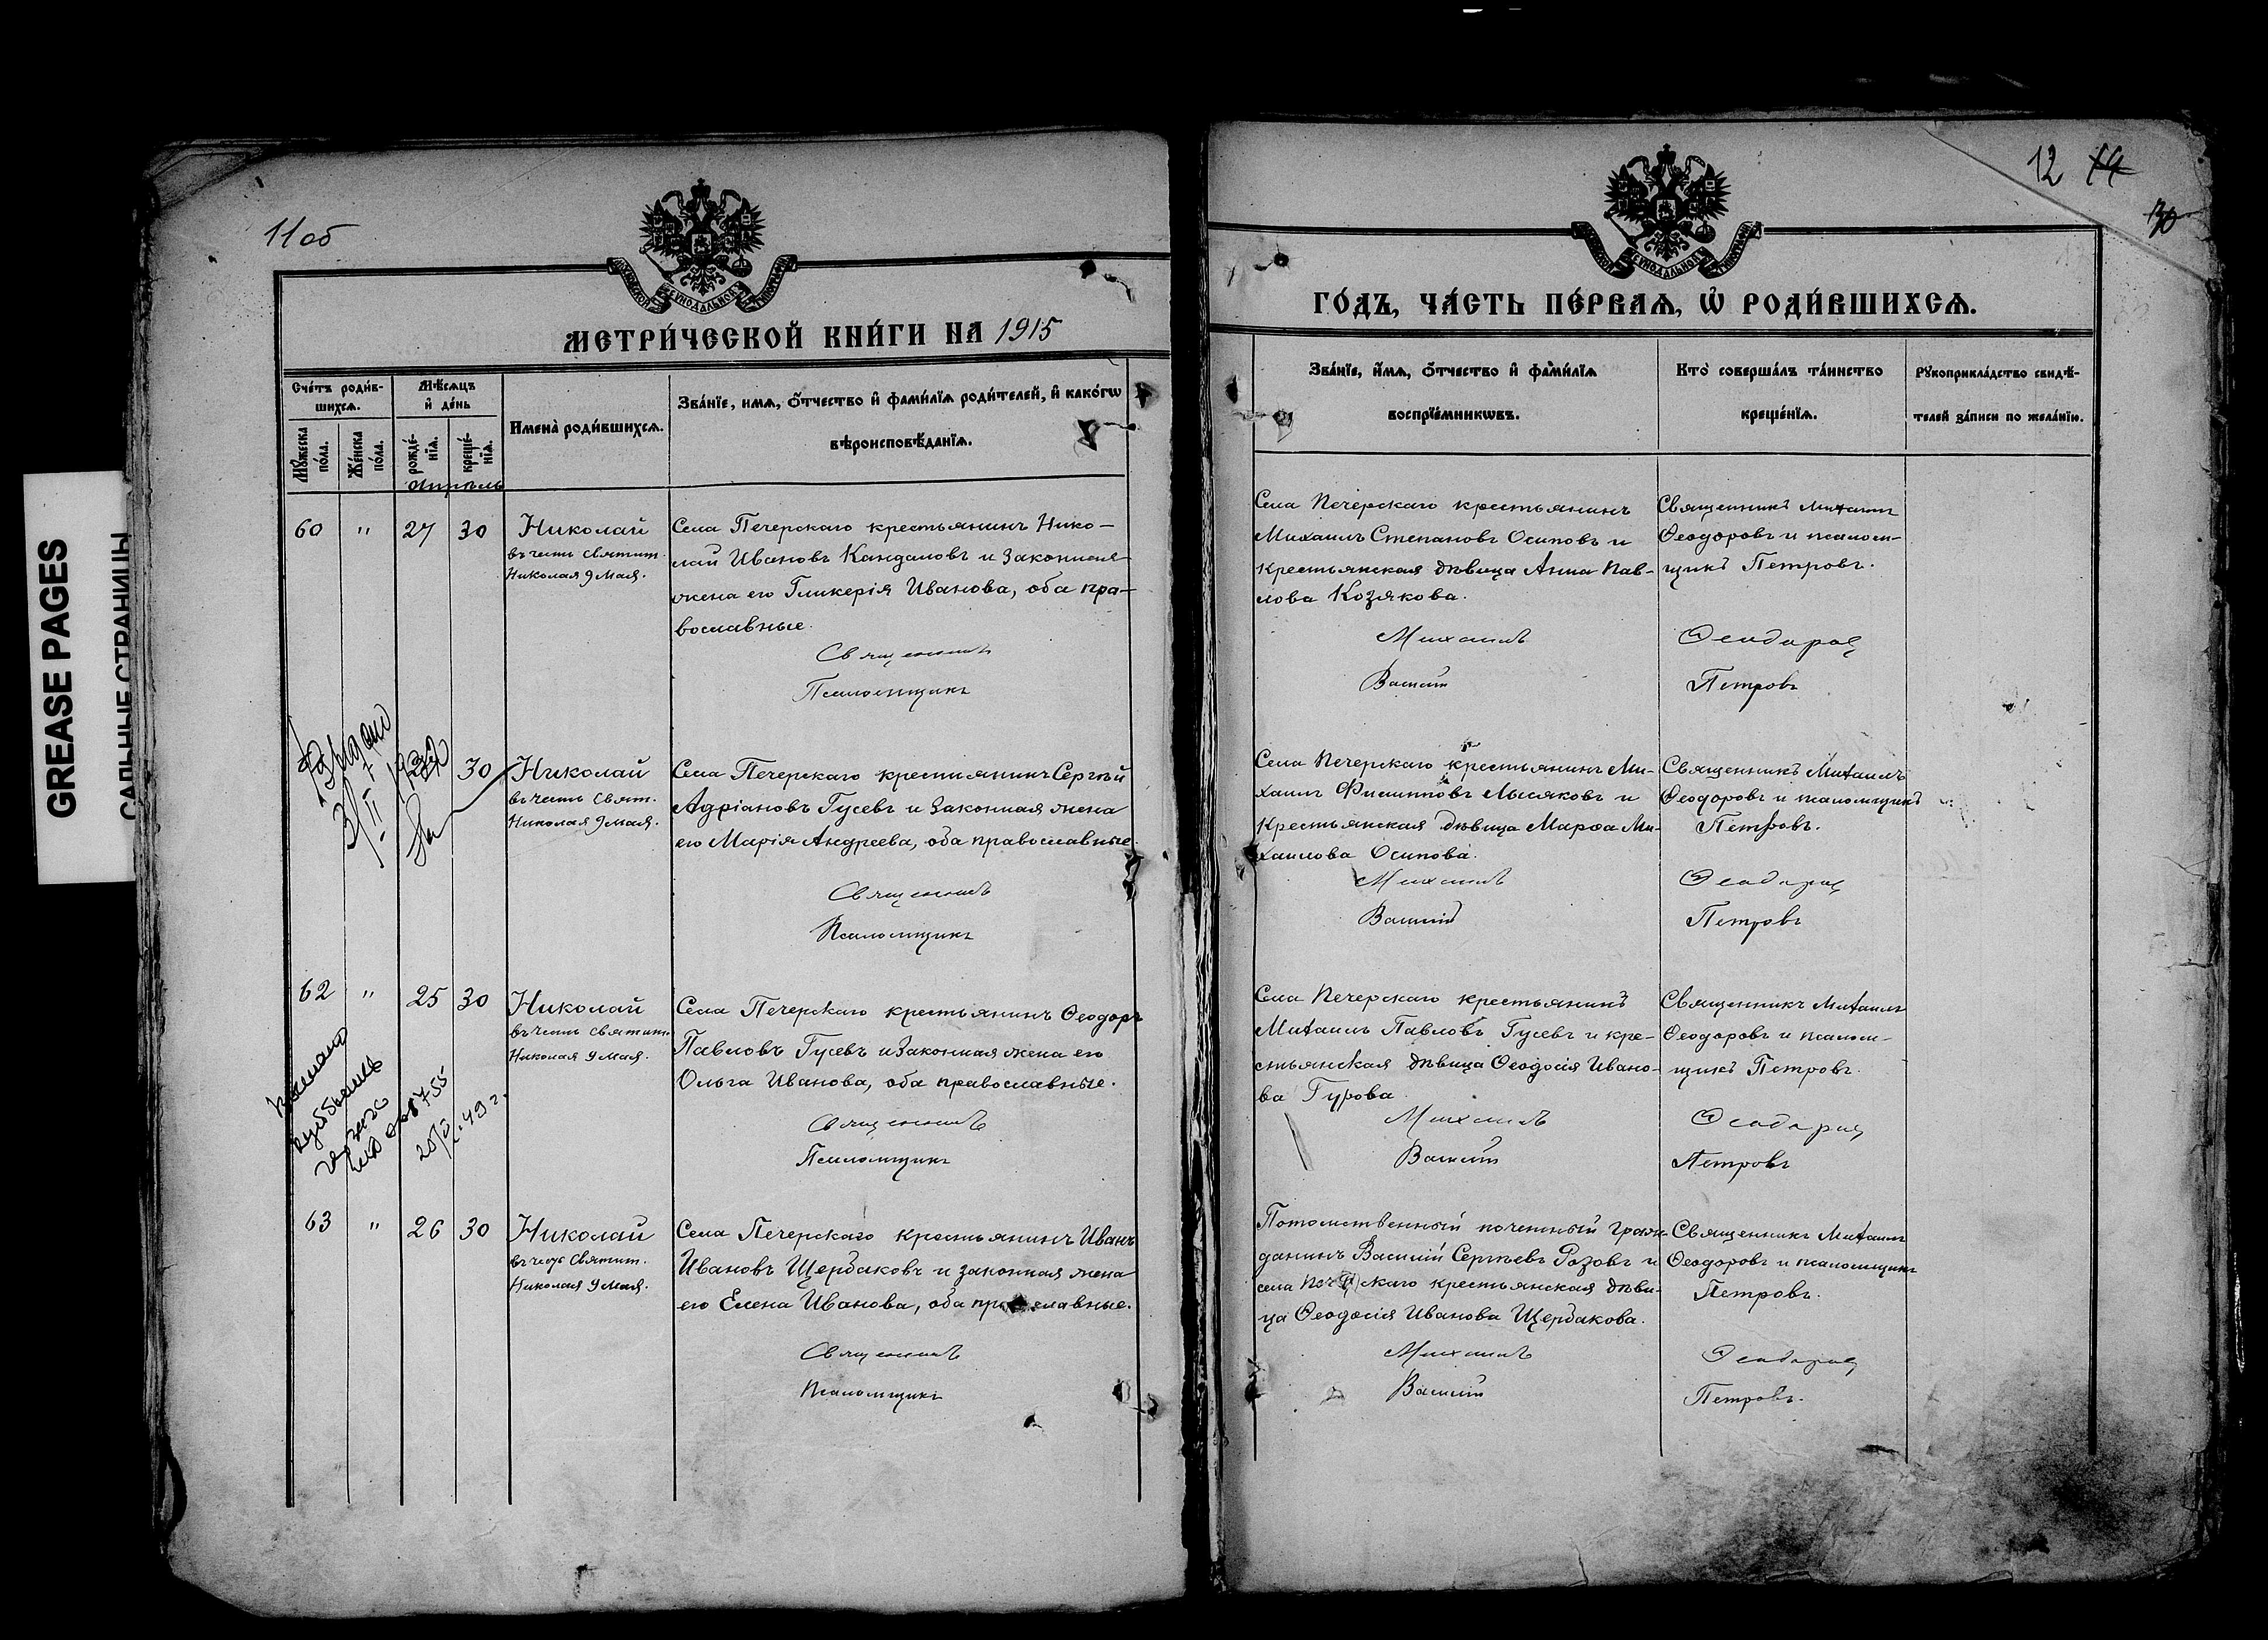 GREASE PAGES
САЛЬНЫЕ СТРАНИЦЫ
11об
МЕТРИ́ЧЕСКОЙ КНИ́ГИ НА 1915
Сче́тъ роди́в-
шихсѧ.
Мѣ́сѧцъ
и҆ де́нь
Мꙋ́жеска
по́ла.
Же́нска
по́ла.
рожде́-
нїѧ.
креще́-
нїѧ.
Имена̀ роди́вшихсѧ.
Зва́нїе, имѧ, ѻ҆́тчество и҆ фами́лїѧ роди́телей, и҆ како́гѡ
вѣроисповѣ́данїѧ.
Апрѣль
60 " 27 30 Николай
въ честь Святит.
Николая 9 Мая.
Села Печерскаго крестьянинъ Нико-
лай Ивановъ Кандаловъ и законная
жена его Гликерія Иванова, оба пра-
вославные.
Священникъ
Псаломщикъ
30 Николай
въ честь Свят.
Николая 9 Мая.
Села Печерскаго крестьянинъ Сергѣй
Адріановъ Гусевъ и законная жена
его Марія Андреева, оба православные.
Священникъ
Псаломщикъ
62 " 25 30 Николай
въ честь Святит.
Николая 9 Мая.
Села Печерскаго крестьянинъ Ѳеодоръ
Павловъ Гусевъ и законная жена его
Ольга Иванова, оба православные.
Священникъ
Псаломщикъ
63 " 26 30 Николай
въ честь Святит.
Николая 9 Мая.
Села Печерскаго крестьянинъ Иванъ
Ивановъ Щербаковъ и законная жена
его Елена Иванова, оба православные.
Священникъ
Псаломщикъ
12
ГО́ДЪ, ЧА́СТЬ ПЕ́РВАѦ, Ѡ҆ РОДИ́ВШИХСѦ.
Зва́нїе, и҆́мѧ, ѻ҆́тчество и҆ фами́лїѧ
воспрїе́мникѡвъ.
Кто̀ соверша́лъ та́инство
креще́нїѧ.
Рꙋкоприкла́дство свидѣ́-
телей за́писи по жела́нїю.
Села Печерскаго крестьянинъ
Михаилъ Степановъ Осиповъ и
крестьянская дѣвица Анна Пав-
лова Козякова.
Священникъ Михаилъ
Ѳеодоровъ и псалом-
щикъ Петровъ.
Михаилъ Ѳеодоровъ
Василій Петровъ
Села Печерскаго крестьянинъ Ми-
хаилъ Филипповъ Лысяковъ и
крестьянская дѣвица Марѳа Ми-
хаилова Осипова.
Священникъ Михаилъ
Ѳеодоровъ и псаломщикъ
Петровъ.
Михаилъ Ѳеодоровъ
Василій Петровъ
Села Печерскаго крестьянинъ
Михаилъ Павловъ Гусевъ и кре-
стьянская дѣвица Ѳеодосія Ивано-
ва Гурова
Священникъ Михаилъ
Ѳеодоровъ и псалом-
щикъ Петровъ.
Михаилъ Ѳеодоровъ
Василій Петровъ
Потомственный почетный граж-
данинъ Василій Сергѣевъ Розовъ и
села Печерскаго крестьянская дѣви-
ца Ѳеодосія Иванова Щербакова.
Священникъ Михаилъ
Ѳеодоровъ и псаломщикъ
Петровъ.
Михаилъ Ѳеодоровъ
Василій Петровъ.